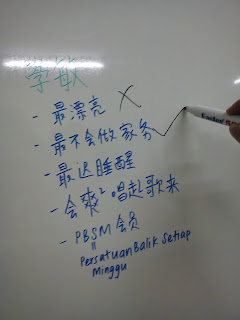 学敏
- 最漂亮 X
- 最不会做家务
- 最迟睡醒
- 会爽² 唱起歌来
- PBSM 会员
=
Persatuan Balik Setiap
Minggu